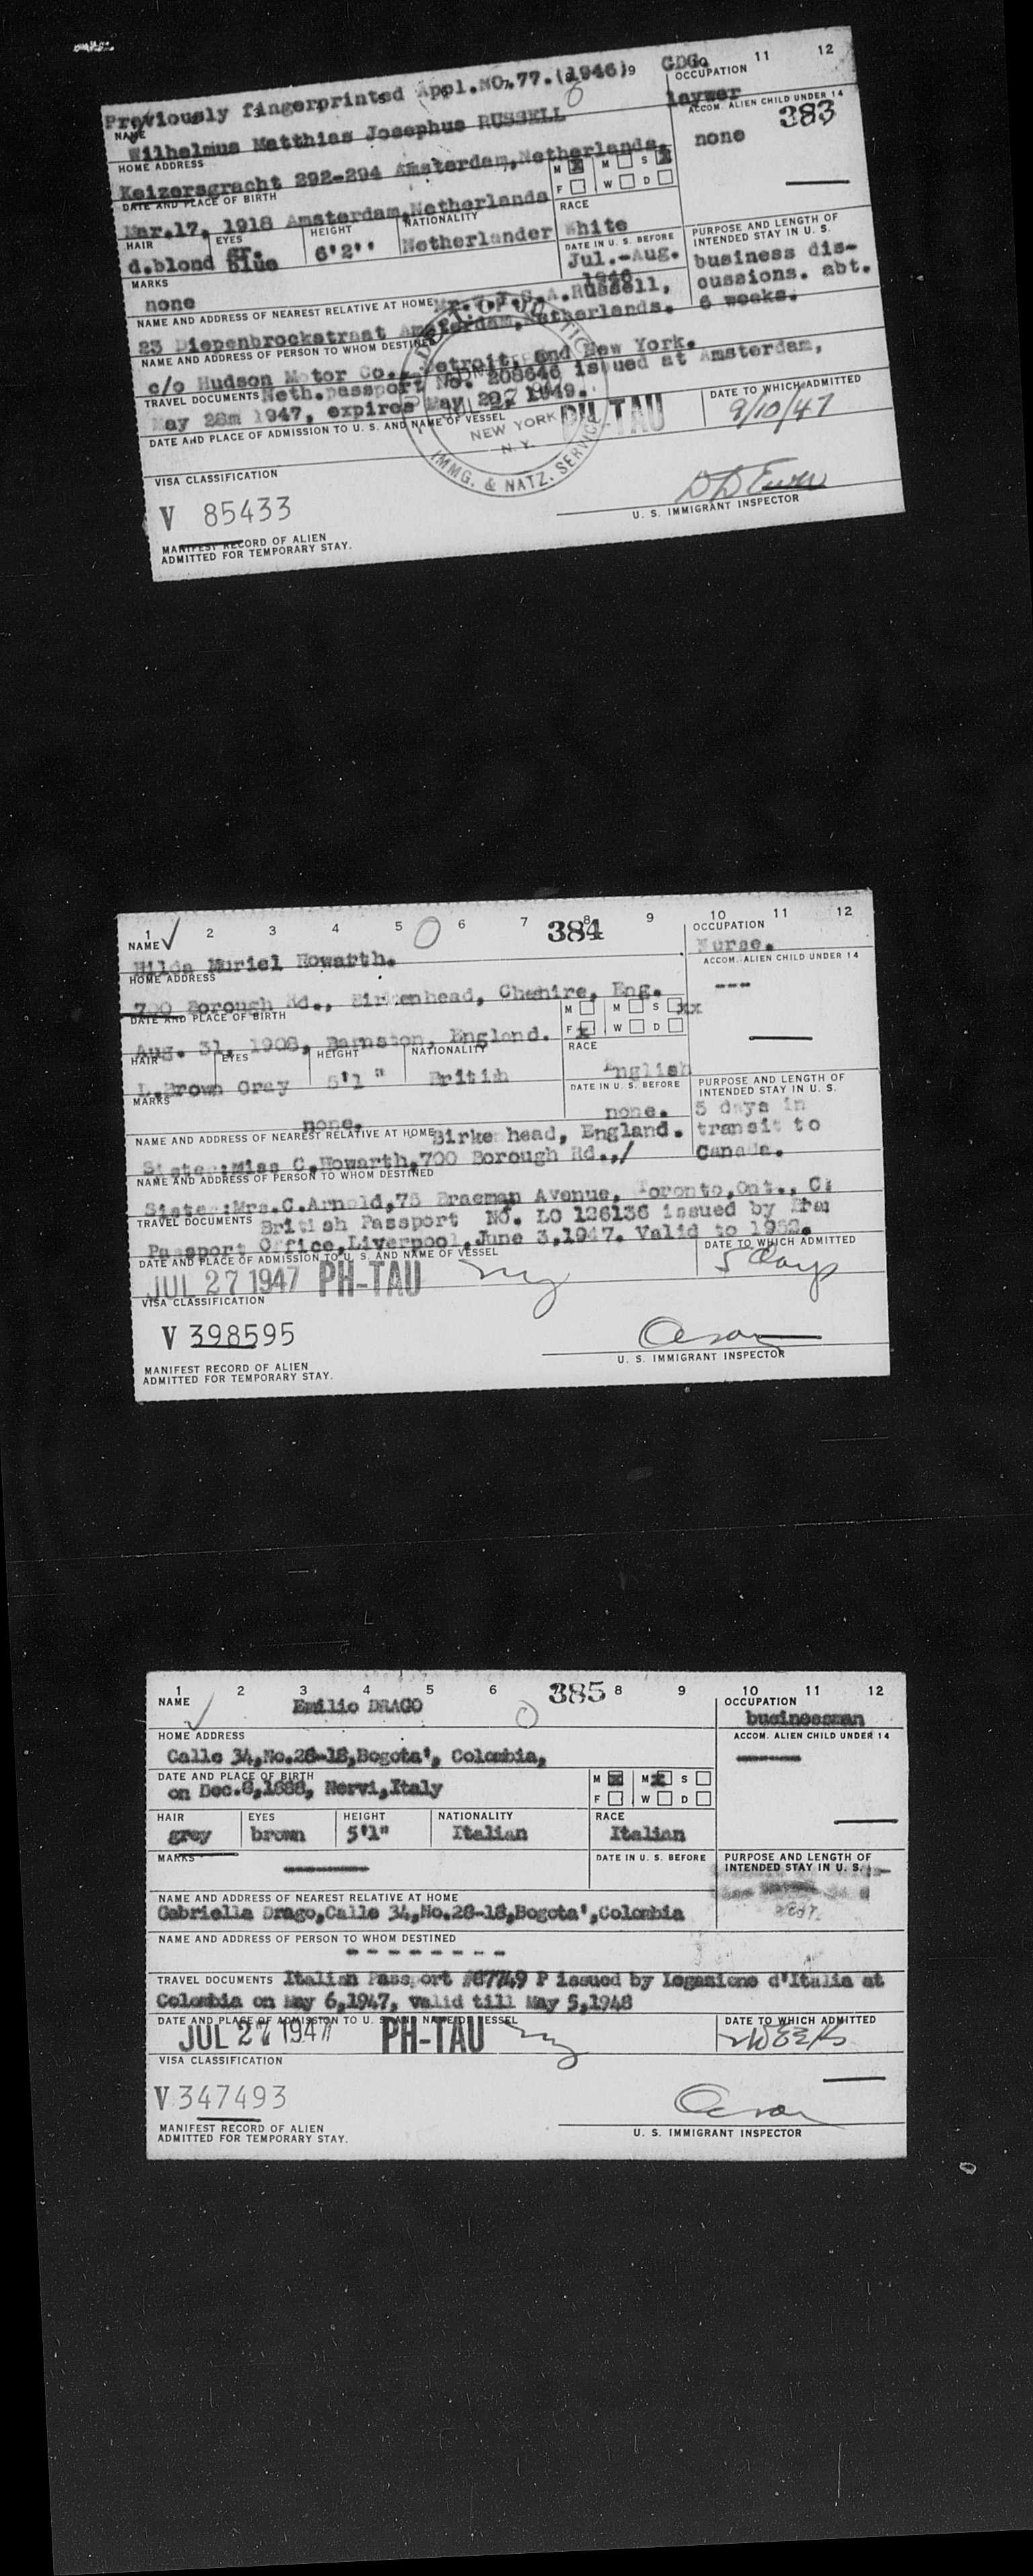 Previously fingerprinted Appl.NO.77.(1946) 9 GDG. 11 12
OCCUPATION
laywer
NAME
Wilhelmus Matthias Josephus RUSSELL
ACCOM. ALIEN CHILD UNDER 14
383
none
HOME ADDRESS
Keizersgracht 292-294 Amsterdam,Netherlands.
M M S
F W D
DATE AND PLACE OF BIRTH
Mar.17, 1918 Amsterdam,Netherlands
HAIR EYES HEIGHT NATIONALITY RACE
d.blond gr. blue 6'2'' Netherlander White
DATE IN U. S. BEFORE
Jul.-Aug.
1946
PURPOSE AND LENGTH OF
INTENDED STAY IN U. S.
business dis-
cussions. abt.
6 weeks.
MARKS
none
NAME AND ADDRESS OF NEAREST RELATIVE AT HOME
A.Russell,
23 Diepenbrockstraat Amsterdam,Netherlands.
NAME AND ADDRESS OF PERSON TO WHOM DESTINED
c/o Hudson Motor Co., Detroit, and New York.
TRAVEL DOCUMENTS Neth.passport No. 208646 issued at Amsterdam,
May 28m 1947, expires May 29, 1949.
DATE AND PLACE OF ADMISSION TO U. S. AND NAME OF VESSEL
DATE TO WHICH ADMITTED
9/10/47
NEW YORK
N. Y.
IMMG. & NATZ. SERVICE
PH-TAU
VISA CLASSIFICATION
V 85433
U. S. IMMIGRANT INSPECTOR
MANIFEST RECORD OF ALIEN
ADMITTED FOR TEMPORARY STAY.
1 2 3 4 5 6 7 384 8 9 10 11 12
NAME OCCUPATION
Hilda Muriel Howarth. Nurse.
ACCOM. ALIEN CHILD UNDER 14
---
HOME ADDRESS
700 Borough Rd., Birkenhead, Cheshire, Eng.
DATE AND PLACE OF BIRTH
M M S xx
F x W D
Aug. 31, 1908, Barnston, England.
HAIR EYES HEIGHT NATIONALITY RACE
L.Brown Gray 5'1 " British English
MARKS
none.
DATE IN U. S. BEFORE
none.
PURPOSE AND LENGTH OF
INTENDED STAY IN U. S.
5 days in
transit to
Canada.
NAME AND ADDRESS OF NEAREST RELATIVE AT HOME Birkenhead, England.
Sister:Miss C.Howarth,700 Borough Rd.,/
NAME AND ADDRESS OF PERSON TO WHOM DESTINED
Sister:Mrs.C.Arnold,75 Braeman Avenue, Toronto,Ont.,
TRAVEL DOCUMENTS British Passport No. LO 126136 issued by
Passport Office,Liverpool,June 3,1947. Valid to 1952.
DATE AND PLACE OF ADMISSION TO U. S. AND NAME OF VESSEL
DATE TO WHICH ADMITTED
JUL 27 1947 PH-TAU ny 5 days
VISA CLASSIFICATION
V 398595
U. S. IMMIGRANT INSPECTOR
MANIFEST RECORD OF ALIEN
ADMITTED FOR TEMPORARY STAY.
1 2 3 4 5 6 7 385 8 9 10 11 12
NAME OCCUPATION
Emilio DRAGO businessman
HOME ADDRESS
ACCOM. ALIEN CHILD UNDER 14
Calle 34,No.28-18,Bogota', Colombia,
DATE AND PLACE OF BIRTH
on Dec.8,1888, Nervi,Italy
M M S
F W D
HAIR EYES HEIGHT NATIONALITY RACE
grey brown 5'1" Italian Italian
MARKS
DATE IN U. S. BEFORE
PURPOSE AND LENGTH OF
INTENDED STAY IN U. S.
NAME AND ADDRESS OF NEAREST RELATIVE AT HOME
Gabriella Drago,Calle 34,No.28-18,Bogota',Colombia
NAME AND ADDRESS OF PERSON TO WHOM DESTINED
--------
TRAVEL DOCUMENTS Italian Passport #67749 P issued by Legazione d'Italia at
Colombia on May 6,1947, valid till May 5,1948
DATE AND PLACE OF ADMISSION TO U. S. AND NAME OF VESSEL
DATE TO WHICH ADMITTED
JUL 27 1947 PH-TAU ny
VISA CLASSIFICATION
V 347493
U. S. IMMIGRANT INSPECTOR
MANIFEST RECORD OF ALIEN
ADMITTED FOR TEMPORARY STAY.